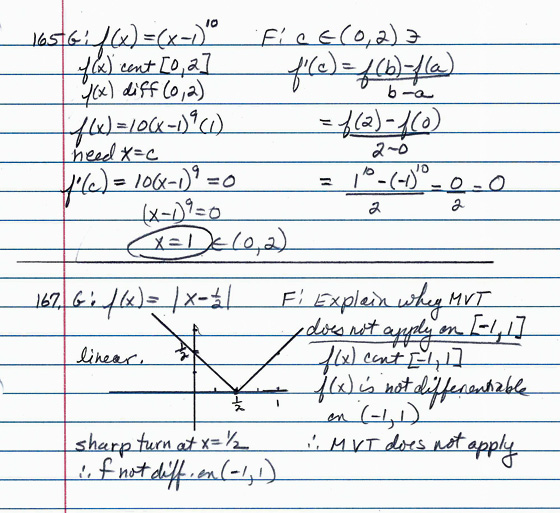 165 G: f(x) = (x-1)^10 F: c ∈ (0,2) ∋
f(x) cont [0,2] f'(c) = f(b)-f(a) / b-a
f(x) diff (0,2)
f(x) = 10(x-1)^9 (1) = f(2)-f(0) / 2-0
need x=c
f'(c) = 10(x-1)^9 = 0 = 1^10-(-1)^10 / 2 = 0/2 = 0
(x-1)^9 = 0
x=1 ∈ (0,2)
167. G: f(x) = |x-1/2| F: Explain why MVT
does not apply on [-1,1]
linear. 1/2 f(x) cont [-1,1]
f(x) is not differentiable
1/2 1 on (-1,1)
sharp turn at x=1/2 ∴ MVT does not apply
∴ f not diff. on (-1,1)